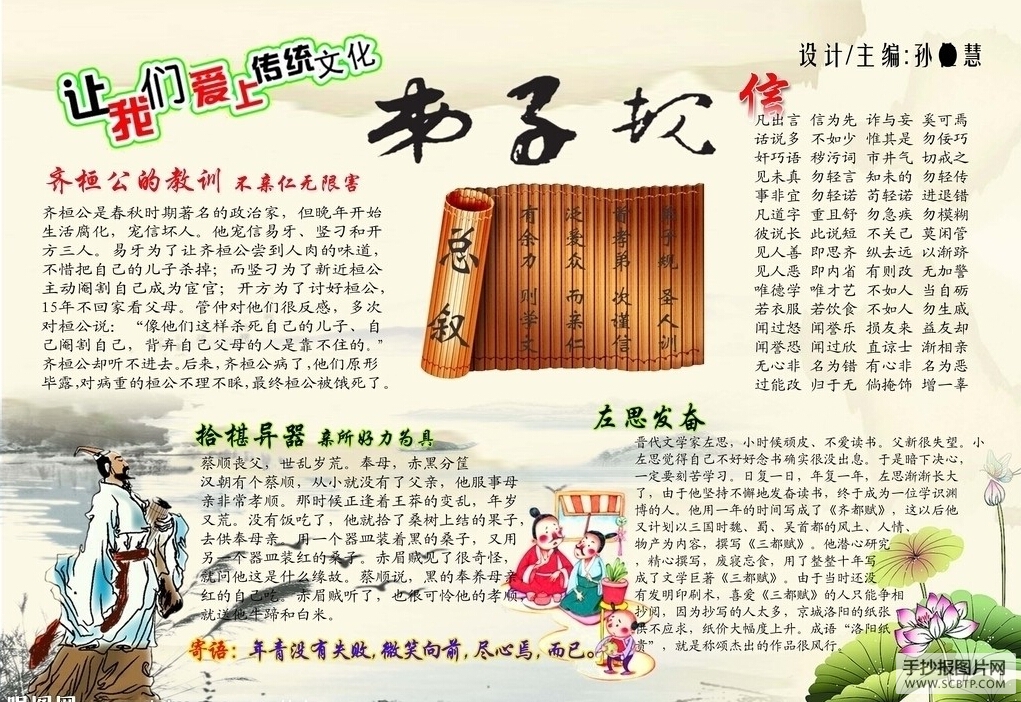 让我们爱上传统文化
弟子规
设计/主编:孙 慧
信
凡出言 信为先 诈与妄 奚可焉
话说多 不如少 惟其是 勿佞巧
奸巧语 秽污词 市井气 切戒之
见未真 勿轻言 知未的 勿轻传
事非宜 勿轻诺 苟轻诺 进退错
凡道字 重且舒 勿急疾 勿模糊
彼说长 此说短 不关己 莫闲管
见人善 即思齐 纵去远 以渐跻
见人恶 即内省 有则改 无加警
唯德学 唯才艺 不如人 当自砺
若衣服 若饮食 不如人 勿生戚
闻过怒 闻誉乐 损友来 益友却
闻誉恐 闻过欣 直谅士 渐相亲
无心非 名为错 有心非 名为恶
过能改 归于无 倘掩饰 增一辜
齐桓公的教训 不亲仁无限害
齐桓公是春秋时期著名的政治家，但晚年开始
生活腐化，宠信坏人。他宠信易牙、竖刁和开
方三人。易牙为了让齐桓公尝到人肉的味道，
不惜把自己的儿子杀掉；而竖刁为了新近桓公
主动阉割自己成为宦官；开方为了讨好桓公，
15年不回家看父母。管仲对他们很反感，多次
对桓公说：“像他们这样杀死自己的儿子、自
己阉割自己，背弃自己父母的人是靠不住的。”
齐桓公却听不进去。后来，齐桓公病了，他们原形
毕露，对病重的桓公不理不睬，最终桓公被饿死了。
总叙
弟子规 圣人训
首孝弟 次谨信
泛爱众 而亲仁
有余力 则学文
拾椹异器 亲所好力为具
蔡顺丧父，世乱岁荒。奉母，赤黑分筐
汉朝有个蔡顺，从小就没有了父亲，他服事母
亲非常孝顺。那时候正逢着王莽的变乱，年岁
又荒。没有饭吃了，他就拾了桑树上结的果子，
去供奉母亲。用一个器皿装着黑的桑子，又用
另一个器皿装红的桑子。赤眉贼见了很奇怪，
就问他这是什么缘故。蔡顺说，黑的奉养母亲
红的自己吃。赤眉贼听了，也很可怜他的孝顺
就送他牛蹄和白米。
左思发奋
晋代文学家左思，小时候顽皮、不爱读书。父新很失望。小
左思觉得自己不好好念书确实很没出息。于是暗下决心，
一定要刻苦学习。日复一日，年复一年，左思渐渐长大
了，由于他坚持不懈地发奋读书，终于成为一位学识渊
博的人。他用一年的时间写成了《齐都赋》，这以后他
又计划以三国时魏、蜀、吴首都的风土、人情、
物产为内容，撰写《三都赋》。他潜心研究
，精心撰写，废寝忘食，用了整整十年写
成了文学巨著《三都赋》。由于当时还没
有发明印刷术，喜爱《三都赋》的人只能争相
抄阅，因为抄写的人太多，京城洛阳的纸张
供不应求，纸价大幅度上升。成语“洛阳纸
贵”，就是称颂杰出的作品很风行。
寄语：年青没有失败，微笑向前，尽心焉，而已。
手抄报图片网
WWW.SCBTP.COM